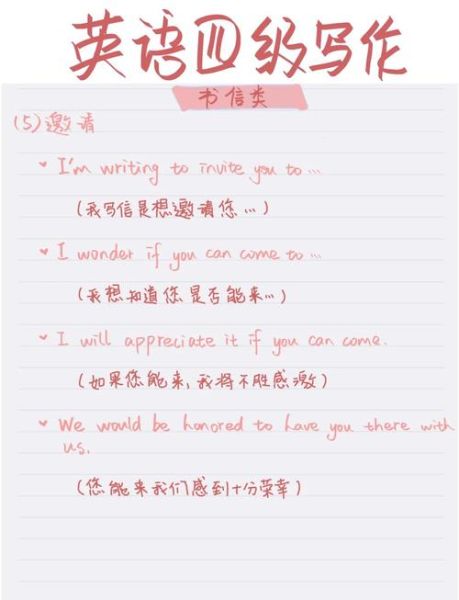 英语四级写作
书信类
(5)邀请
I'm writing to invite you to…
(我写信是想邀请您…)
I wonder if you can come to…
(我想知道您是否能来…)
I will appreciate it if you can come.
(如果您能来,我将不胜感激)
We would be honored to have you there with
us.
(您能来我们感到十分荣幸)